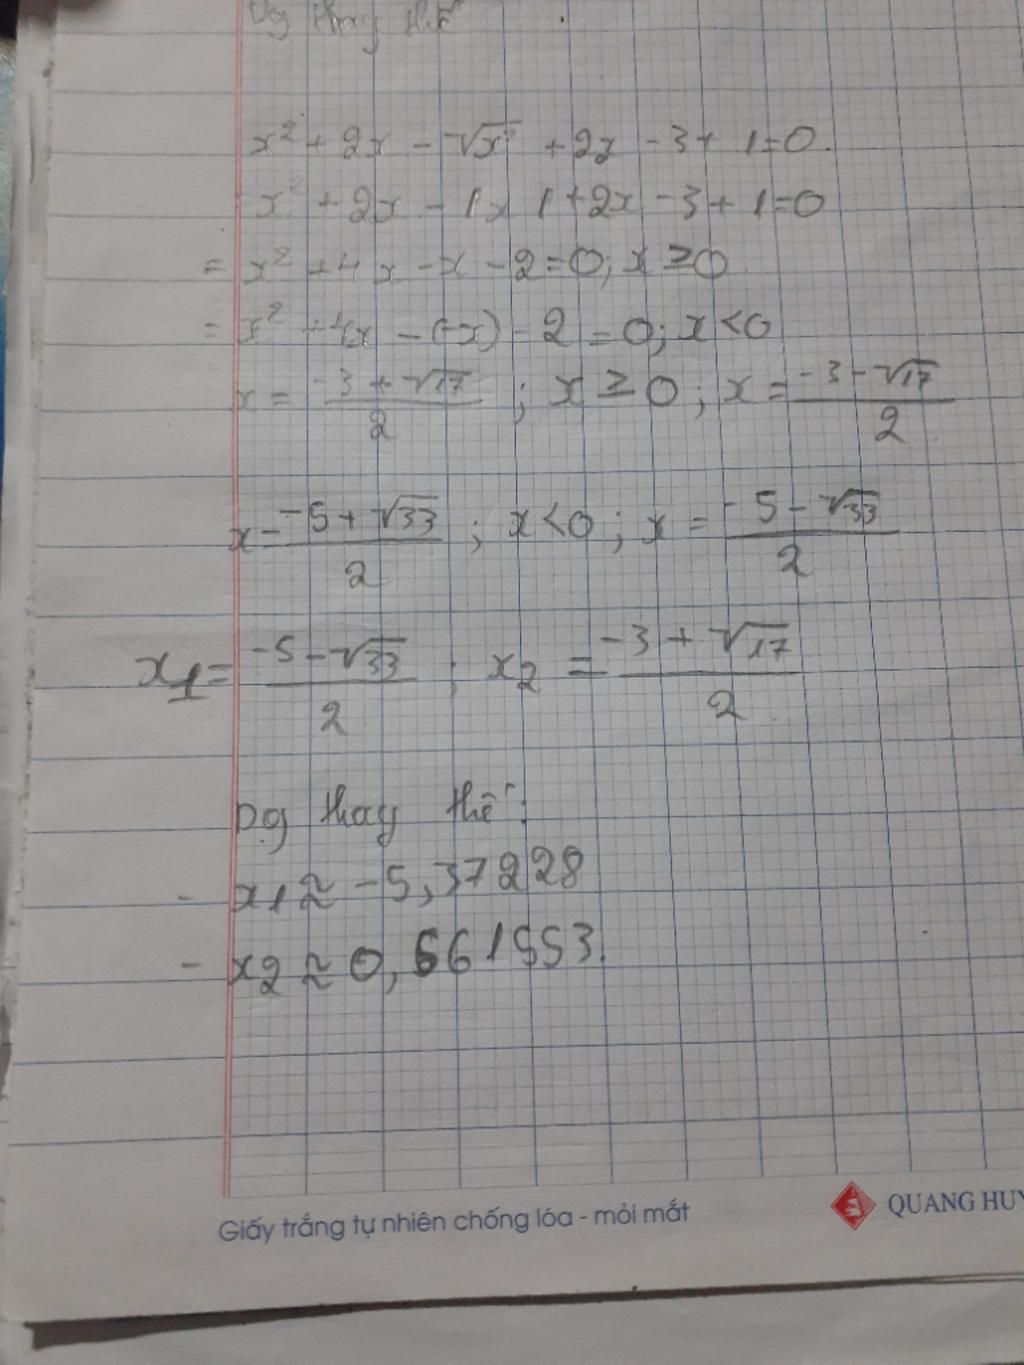 Dg thay thế
x² + 2x - √x² + 2x - 3 + 1 = 0.
x² + 2x - |x| + 2x - 3 + 1 = 0
= x² + 4x - x - 2 = 0; x ≥ 0
= x² + 4x - (-x) - 2 = 0; x < 0
x = (-3 + √17)/2 ; x ≥ 0 ; x = (-3 - √17)/2
x = (-5 + √33)/2 ; x < 0 ; x = (-5 - √33)/2
x₁ = (-5 - √33)/2 ; x₂ = (-3 + √17)/2
Dg thay thế:
- x₁ ≈ -5,37228
- x₂ ≈ 0,561553.
Giấy trắng tự nhiên chống lóa - mỏi mắt
QUANG HUY